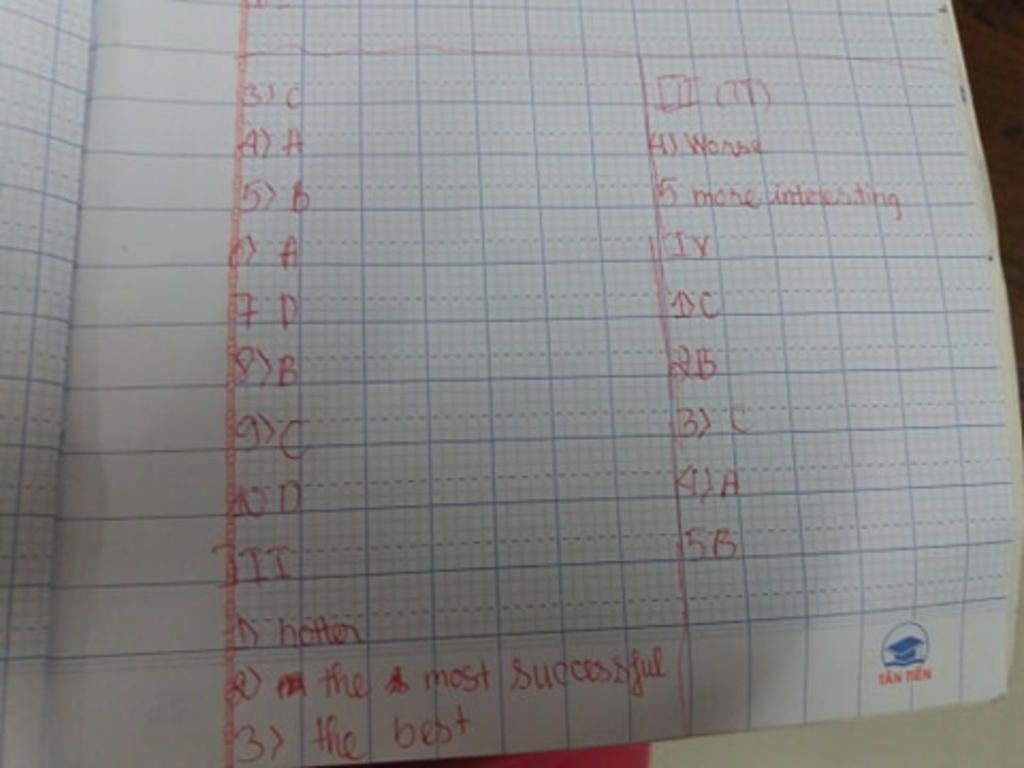 3) C
4) A
5) B
6) A
7 D
8) B
9) C
10 D
III
1) hotter
2) the most successful
3) the best
III (TT)
4) Worse
5 more interesting
IV
1) C
2B
3) C
4) A
5B
TÂN TIẾN